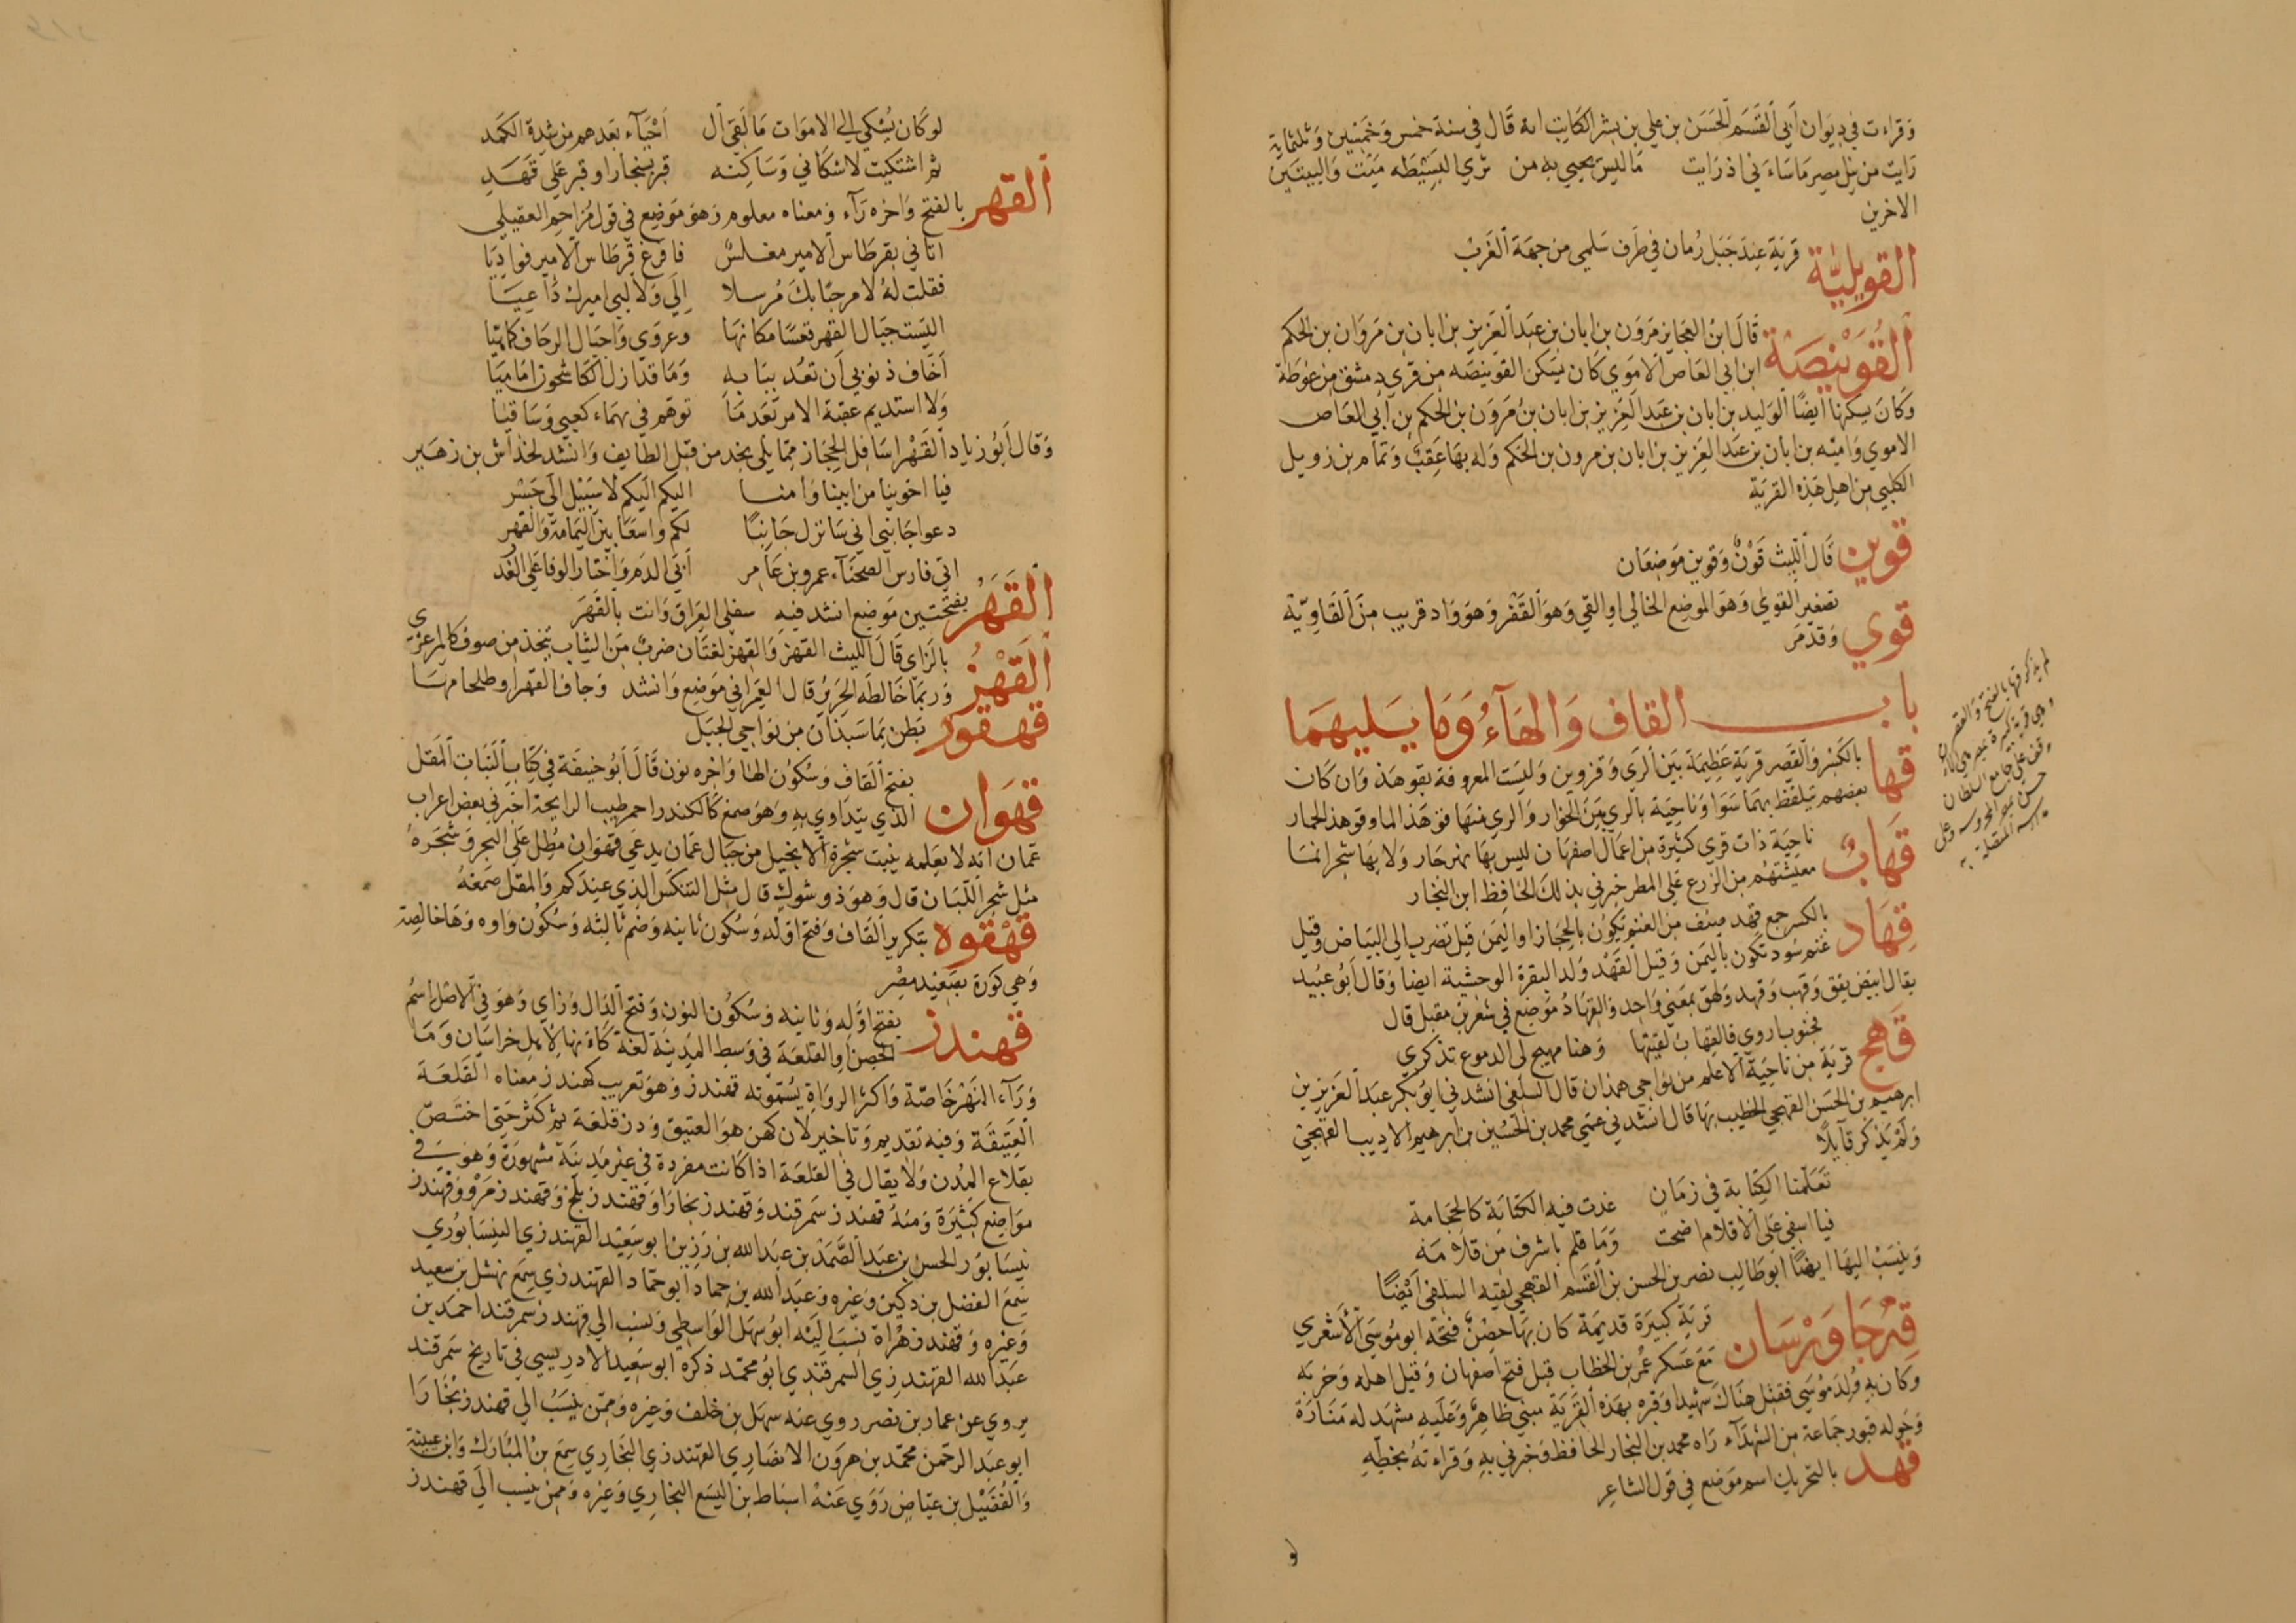 وقرات في ديوان أبي القسم الحسن بن علي بن بشر الكاتب انه قال في سنة خمس وخمسين وثلثماية
رايت من نيل مصر ما ساءني اذ رايت ما ليس يحيي به من ثري البسيطه ميت والبيتين
الاخرين
القويلية قرية عند جبل رمان في طرف سلمي من جهة الغرب
القوينصة قال ابن النجايز مرون بن ابان بن عبد العزيز بن ابان بن مروان بن الحكم
ابن ابي العاص الاموي كان يسكن القوينصه من قري دمشق من غوطة
وكان يسكنها أيضا الوليد بن ابان بن عبد العزيز بن ابان بن مرون بن الحكم بن أبي العاص
الاموي واميه بن ابان بن عبد العزيز بن ابان بن مرون بن الحكم وله بها عقب وتمام بن زويل
الكلبي من اهل هذه القرية
قوين قال الليث قون وقوين موضعان
قوي تصغير القوي وهو الموضع الخالي او القي وهو القفر وهو واد قريب من القاوية
وقد مر
باب القاف والهاء وما يليهما
قها بالكسر والقصر قرية عظيمة بين الري وقزوين وليست المعروفة بقوهذ وان كان
بعضهم يتلفظ بهما سوا وناحية بالري بين الخوار والري منها قوهذ الما وقوهذ الحمار
قهاب ناحية ذات قري كثيرة من اعمال اصفهان ليس بها نهر جار ولا بها شجر انما
معيشتهم من الزرع على المطر خبرني بذلك الحافظ ابن النجار
قهاد بالكسر جمع قهد صنف من الغنم يكون بالحجاز او اليمن قيل تضرب الي البياض وقيل
غنم سود تكون باليمن وقيل القهد ولد البقرة الوحشية ايضا وقال أبو عبيد
يقال ابيض يقق وقهب وقهد ولهق بمعني واحد والقهاد موضع في شعر بن مقبل قال
فجنوب اروي فالقهاب لقيتها وهنا مهيج لي الدموع تذكري
قهج قرية من ناحية الاعلم من نواحي همذان قال السلفي انشدني ابو بكر عبد العزيز بن
ابرهيم بن الحسن القهجي الخطيب بها قال انشدني عمي محمد بن الحسين بن ابرهيم الاديب القهجي
ولم يذكر قايلا
تعلمنا الكتابة في زمان غدت فيه الكتابة كالحجامة
فيا اسفي على الاقلام اضحت وما قلم باشرف من قلامه
وينسب اليها ايضا ابو طالب نصر بن الحسن بن القسم القهجي لقيه السلفي أيضا
قهجاورسان قرية كبيرة قديمة كان بها حصن فتحه ابو موسي الأشعري
مع عسكر عمر بن الخطاب قبل فتح اصفهان وقيل اهله وخربه
وكان به ولد موسي فقتل هناك شهيدا وقبره بهذه القرية مبني ظاهر وعليه مشهد له منارة
وحوله قبور جماعة من الشهداء راه محمد بن النجار الحافظ وخبرني به وقراته بخطه
قهد بالتحريك اسم موضع في قول الشاعر
لو
لو كان يشكي الي الاموات ما لقي ال أحياء بعدهم من شدة الكمد
ثم اشتكيت لاشكاني وساكنه قبر بسنجار او قبر على قهد
القهر بالفتح واخره راء ومعناه معلوم وهو موضع في قول مزاحم العقيلي
اتاني بقرطاس الامير مغلس فافزع قرطاس الامير فواديا
فقلت له لا مرحبا بك مرسلا الي ولا لبي اميرك داعيا
اليست جبال القهر قعسا مكانها وعروي واجبال الرحاف كما هيا
أخاف ذنوبي أن تعد ببابه وما قد ازل الكاشحون اماميا
ولا استديم عقبة الامر بعد ما تورهم في بهماء كعبي وساقيا
وقال أبو زياد القهر اسافل الحجاز مما يلي نجد من قبل الطايف وانشد لخداش بن زهير
فيا اخوينا من ابينا وامنا اليكم اليكم لا سبيل الي جسر
دعوا جانبي اني سانزل جانبا لكم واسعا بين اليمامة والقهر
ابي فارس الضحياء عمرو بن عامر أبي الذم واختار الوفا على الغد
القهر بفتحتين موضع انشد فيه سفلي العراق وانت بالقهر
القهز بالزاي قال الليث القهز والقهز لغتان ضرب من الثياب يتخذ من صوف كالمرعزي
وربما خالطه الحرير قال العمراني موضع وانشد وحاف القهز او طلخامها
قهقور بطن بماسبذان من نواحي الجبل
قهوان بفتح القاف وسكون الها واخره نون قال أبو حنيفة في كتاب النبات المقل
الذي يتداوي به وهو صمغ كالكندر احمر طيب الرايحة اخبرني بعض اعراب
عمان انه لا يعلمه ينبت شجرة الا بجبل من جبال عمان يدعي قهوان مطل على البحر وشجره
مثل شجر اللبان قال وهو ذو شوك قال مثل التنكس الذي عندكم والمقل صمغه
قهقوه بتكرير القاف وفتح اوله وسكون ثانيه وضم ثالثه وسكون واوه وها خالصه
وهي كورة بصعيد مصر
قهندز بفتح اوله وثانيه وسكون النون وفتح الدال وزاي وهو في الاصل اسم
الحصن او القلعة في وسط المدينة لغة كانها لاهل خراسان وما
وراء النهر خاصة واكثر الرواة يسمونه قهندز وهو تعريب كهندز معناه القلعة
العتيقة وفيه تقديم وتاخير لان كهن هو العتيق ودز قلعة ثم كثر حتي اختص
بقلاع المدن ولا يقال في القلعة اذا كانت مفردة في غير مدينة مشهورة وهو في
مواضع كثيرة ومنه قهندز سمرقند وقهندز بخارا وقهندز بلخ وقهندز مرو وقهندز
نيسابور الحسن بن عبد الصمد بن عبد الله بن رزين ابو سعيد القهندزي النيسابوري
سمع الفضل بن دكين وغيره وعبد الله بن حماد ابو حماد القهندزي سمع نهشل بن سعيد
وغيره وقهندز هراة نسب اليه ابو سهل الواسطي ونسب الي قهندز سمرقند احمد بن
عبد الله القهندزي السمرقندي ابو محمد ذكره ابو سعيد الادريسي في تاريخ سمرقند
يروي عن عمار بن نصر روي عنه سهل بن خلف وغيره وممن ينسب الي قهندز بخارا
ابو عبد الرحمن محمد بن هرون الانصاري القهندزي البخاري سمع بن المبارك وابن عيينة
والفضيل بن عياض روي عنه اسباط بن اليسع البخاري وغيره وممن ينسب الي قهندز